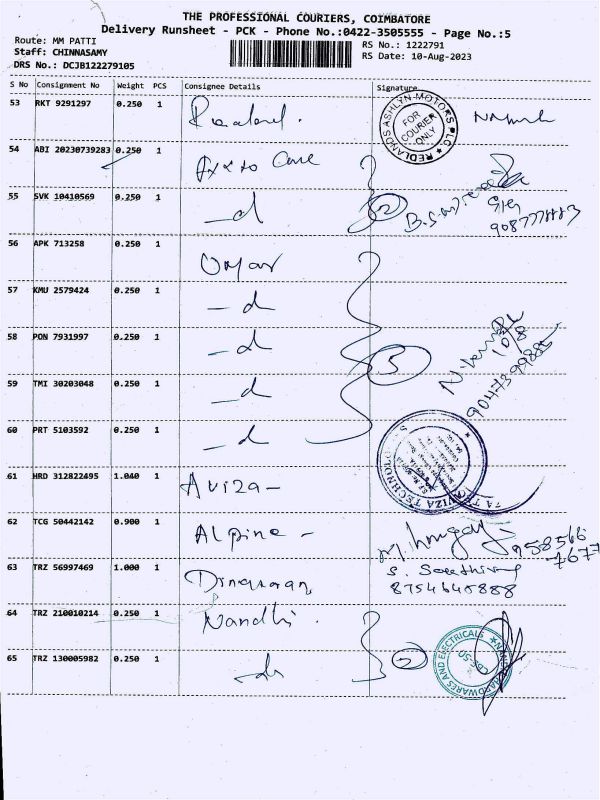 THE PROFESSIONAL COURIERS, COIMBATORE
Delivery Runsheet - PCK - Phone No.:0422-3505555 - Page No.:5
Route: MM PATTI
Staff: CHINNASAMY
DRS No.: DCJB122279105
RS No.: 1222791
RS Date: 10-Aug-2023
S No Consignment No Weight PCS Consignee Details Signature
53 RKT 9291297 0.250 1
REDLANDS ASHLYN MOTORS PLC
FOR
COURIER
ONLY
54 ABI 20230739283 0.250 1 Care
55 SVK 10410569 0.250 1 - d 2
56 APK 713258 0.250 1 Omar
57 KMU 2579424 0.250 1 - d
58 PON 7931997 0.250 1 - d 5
10/8
59 TMI 30203048 0.250 1 - d
60 PRT 5103592 0.250 1 - d
61 HRD 312822495 1.040 1 Aviza -
62 TCG 50442142 0.900 1 Alpine - 958566
7677
63 TRZ 56997469 1.000 1 Dinamaran
8754645888
64 TRZ 210010214 0.250 1 Nandhi
65 TRZ 130005982 0.250 1 - d 2
HARDWARES AND ELECTRICALS